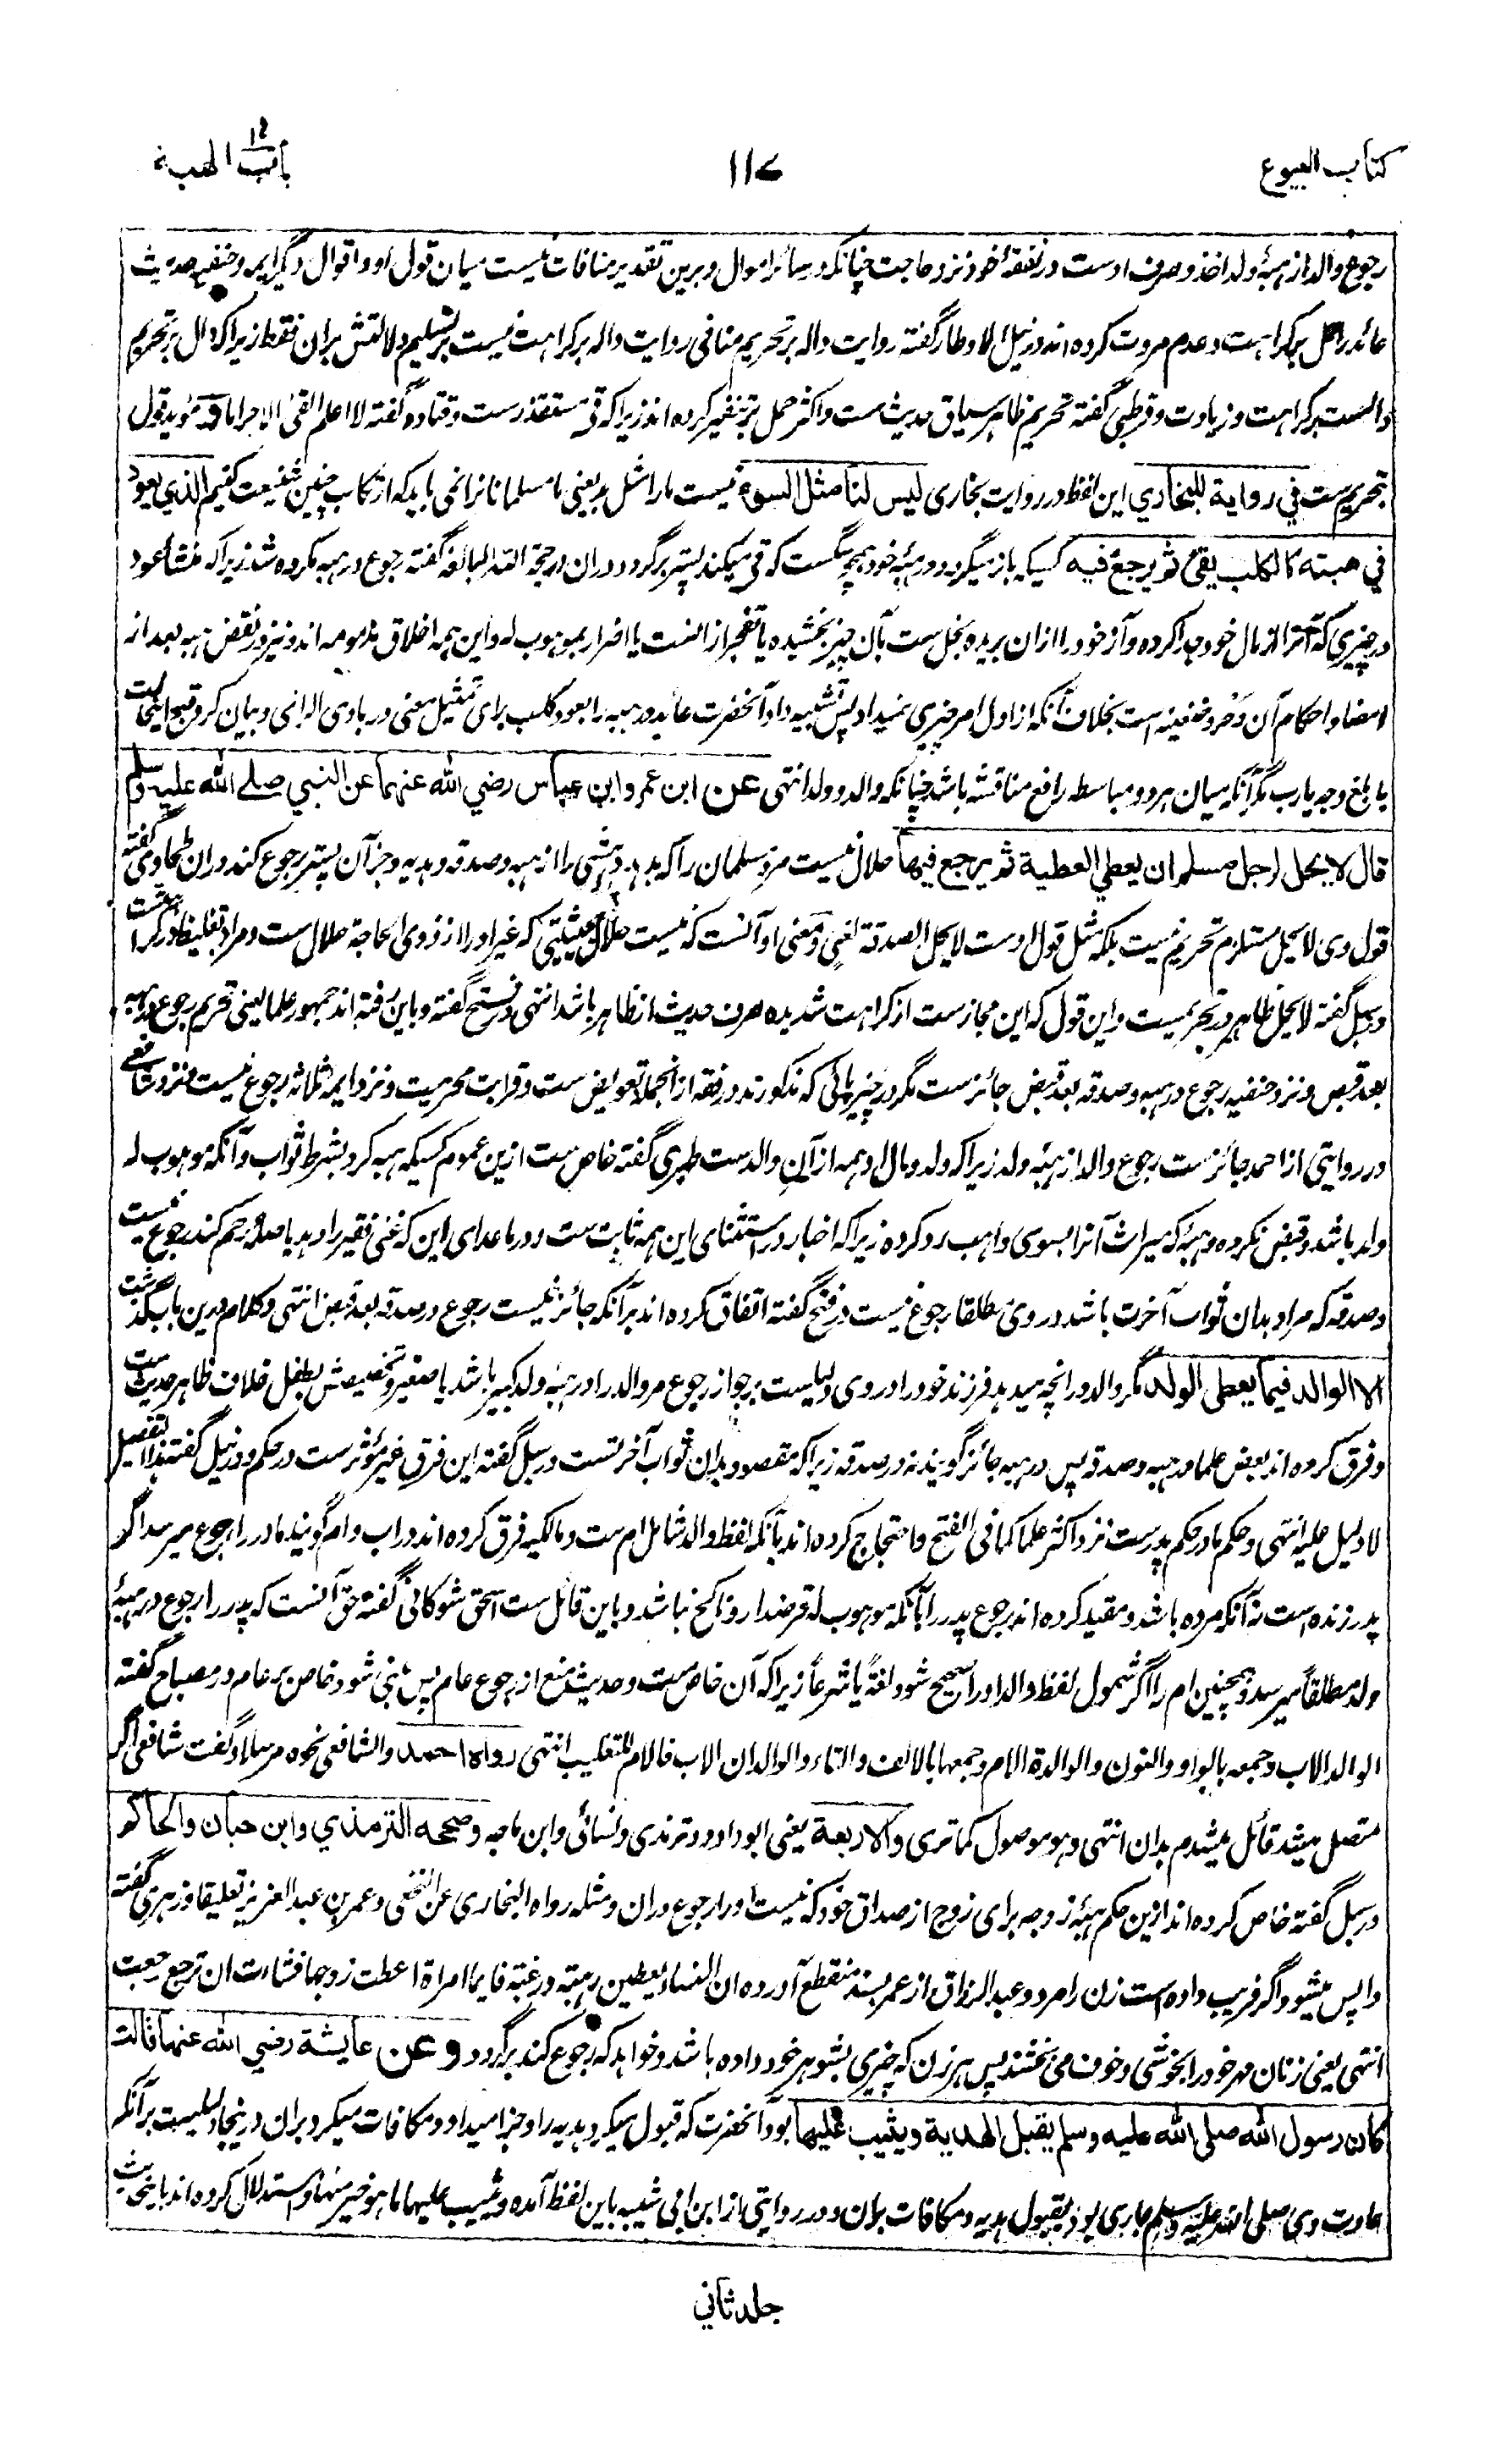 كتاب البيوع
١١٧
باب الهبة
رجوع والد از هبهٔ ولد اخذ و صرف اوست در نفقهٔ خود نزد حاجت چنانکه در سائر اموال و برین تقدیر منافات نیست میان قول او و اقوال دیگر ایمه و حنفیه حدیث
عائد را حمل بر کراهت و عدم مروت کرده اند و در نیل الاوطار گفته روایت داله بر تحریم منافی روایت داله بر کراهت نیست بر تسلیم دلالتش بران فقط زیرا که دال بر تحریم
دالست بر کراهت و زیادت و قرطبی گفته تحریم ظاهر سیاق حدیث ست و اکثر حمل بر تنفیر کرده اند زیرا که قی مستقذرست و قتاده گفته لا اعلم القئ الا حراما مؤید قول
تحریم ست في رواية للبخاري این لفظ در روایت بخاری ليس لنا مثل السوء نیست ما را مثل بد یعنی ما مسلمانان را نمی باید که ارتکاب چنین شنیعت کنیم الذي يعود
في هبته كالكلب يقئ ثم يرجع فيه کسیکه باز میگردد در هبهٔ خود همچو سگ ست که قی میکند پستر برگردد دران در حجة الله البالغه گفته رجوع در هبه مکروه شد زیرا که منشأ عود
در چیزی که آنرا از مال خود جدا کرده و آز خود را ازان بریده بخل ست بآن چیز بخشیده یا تضجر ازانست یا اضرار بموهوب له و این همه اخلاق مذمومه اند و نیز در نقض هبه بعد از
امضا و احکام آن وَحر و ضغینه است بخلاف آنکه از اول امر چیزی نمیداد پس تشبیه داد آنحضرت عائد در هبه را بعود کلب برای تمثیل معنی در بادی الرای و بیان کرد قبح اینحالت
بابلغ وجه یارب مگر آنکه میان هر دو مباسطه رافع مناقشه باشد چنانکه والد و ولد انتهی عن ابن عمر وابن عباس رضي الله عنهما عن النبي صلى الله عليه وسلم
قال لا يحل لرجل مسلم ان يعطي العطية ثم يرجع فيها حلال نیست مرد مسلمان را که بدهد دهشی را از هبه و صدقه و هدیه و جز آن پستر رجوع کند دران طحاوی گفته
قول وی لا یحل مستلزم تحریم نیست بلکه مثل قول اوست لا یحل الصدقة لغنی و معنی او آنست که نیست حلال بحیثیتی که غیر او را از ذوی الحاجة حلال ست و مراد تغلیظ در کراهت ست
در سبل گفته لا یحل ظاهر در تحریم ست و این قول که این مجازست از کراهت شدیده صرف حدیث از ظاهر باشد انتهی در فتح گفته و باین رفته اند جمهور علما یعنی تحریم رجوع در هبه
بعد قبض و نزد حنفیه رجوع در هبه و صدقه بعد قبض جائز ست مگر در چیزهائی که مذکورند در فقه ازانجمله تعویض ست و قرابت محرمیت و نزد ایمه ثلاثه رجوع نیست و نزد شافعی
در روایتی از احمد جائز ست رجوع والد از هبهٔ ولد زیرا که ولد و مال او همه از آنِ والدست طبری گفته خاص ست ازین عموم کسیکه هبه کرد بشرط ثواب و آنکه موهوب له
ولد باشد و قبض نکرده و هبهٔ که میراث آنرا بسوی واهب رد کرده زیرا که اخبار در استثنای این همه ثابت ست و در ماعدای این که غنی فقیر را دهد یا صلهٔ رحم کند رجوع نیست
و صدقه که مراد بدان ثواب آخرت باشد در وی مطلقا رجوع نیست در فتح گفته اتفاق کرده اند برآنکه جائز نیست رجوع در صدقه بعد قبض انتهی و کلام درین باب گذشت
الا الوالد فيما يعطى الولد مگر والد در انچه میدهد فرزند خود را در وی دلیلیست بر جواز رجوع مر والد را در هبهٔ ولد کبیر باشد یا صغیر و تخصیصش بطفل خلاف ظاهر حدیث ست
و فرق کرده اند بعض علما در هبه و صدقه پس در هبه جائز گویند نه در صدقه زیرا که مقصود بدان ثواب آخرتست در سبل گفته این فرق غیر مؤثر ست در حکم و در نیل گفته هذا التفصیل
لا دلیل علیه انتهی و حکم مادر حکم پدرست نزد اکثر علما کما فی الفتح و احتجاج کرده اند بآنکه لفظ والد شامل ام ست و مالکیه فرق کرده اند در اب و ام گویند مادر را رجوع میرسد اگر
پدر زنده است نه آنکه مرده باشد و مقید کرده اند رجوع پدر را بآنکه موهوب له قرضدار و ناکح نباشد و باین قائل ست اسحق شوکانی گفته حق آنست که پدر را رجوع در هبهٔ
ولد مطلقاً میرسد و همچنین ام را اگر شمول لفظ والد او را صحیح شود لغةً یا شرعاً زیرا که آن خاص ست و حدیث منع از رجوع عام پس مبنی شود خاص بر عام در مصباح گفته
الوالد الاب و جمعه بالواو والنون والوالدة الام وجمعها بالالف والتاء والوالدان الاب فالام للتغليب انتهی رواه احمد والشافعی نحوه مرسلا و گفت شافعی اگر
متصل میشد قائل میشدم بدان انتهی و هو موصول کما تری والاربعة یعنی ابوداود و ترمذی و نسائی و ابن ماجه وصححه الترمذي وابن حبان والحاكم
در سبل گفته خاص کرده اند ازین حکم هبهٔ زوجه برای زوج از صداق خود که نیست او را رجوع دران و مثله رواه البخاري عن النخعي وعمر بن عبد العزيز تعليقا و زهری گفته
واپس میشود اگر فریب داده است زن را مرد و عبد الرزاق از عمر بسند منقطع آورده ان النساء يعطين رهبة ورغبة فايما امرأة اعطت زوجها فشاءت ان ترجع رجعت
انتهی یعنی زنان مهر خود را بخوشی و خوف می بخشند پس هر زن که چیزی بشوهر خود داده باشد و خواهد که رجوع کند برگردد وعن عايشة رضي الله عنها قالت
كان رسول الله صلى الله عليه وسلم يقبل الهدية ويثيب عليها بود آنحضرت که قبول میکرد هدیه را و جزا میداد و مکافات میکرد بران درینجا دلیلیست برآنکه
عادت وی صلی الله علیه وسلم جاری بود بقبول هدیه و مکافات بران و در روایتی از ابن ابی شیبه باین لفظ آمده ویثیب علیها ما هو خیر منها و استدلال کرده اند باینحدیث
جلد ثاني